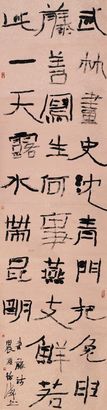 武林畫史沈青門把兔
藤善寫生何事燕支鮮若
此一天露水帶昆明
青藤詩